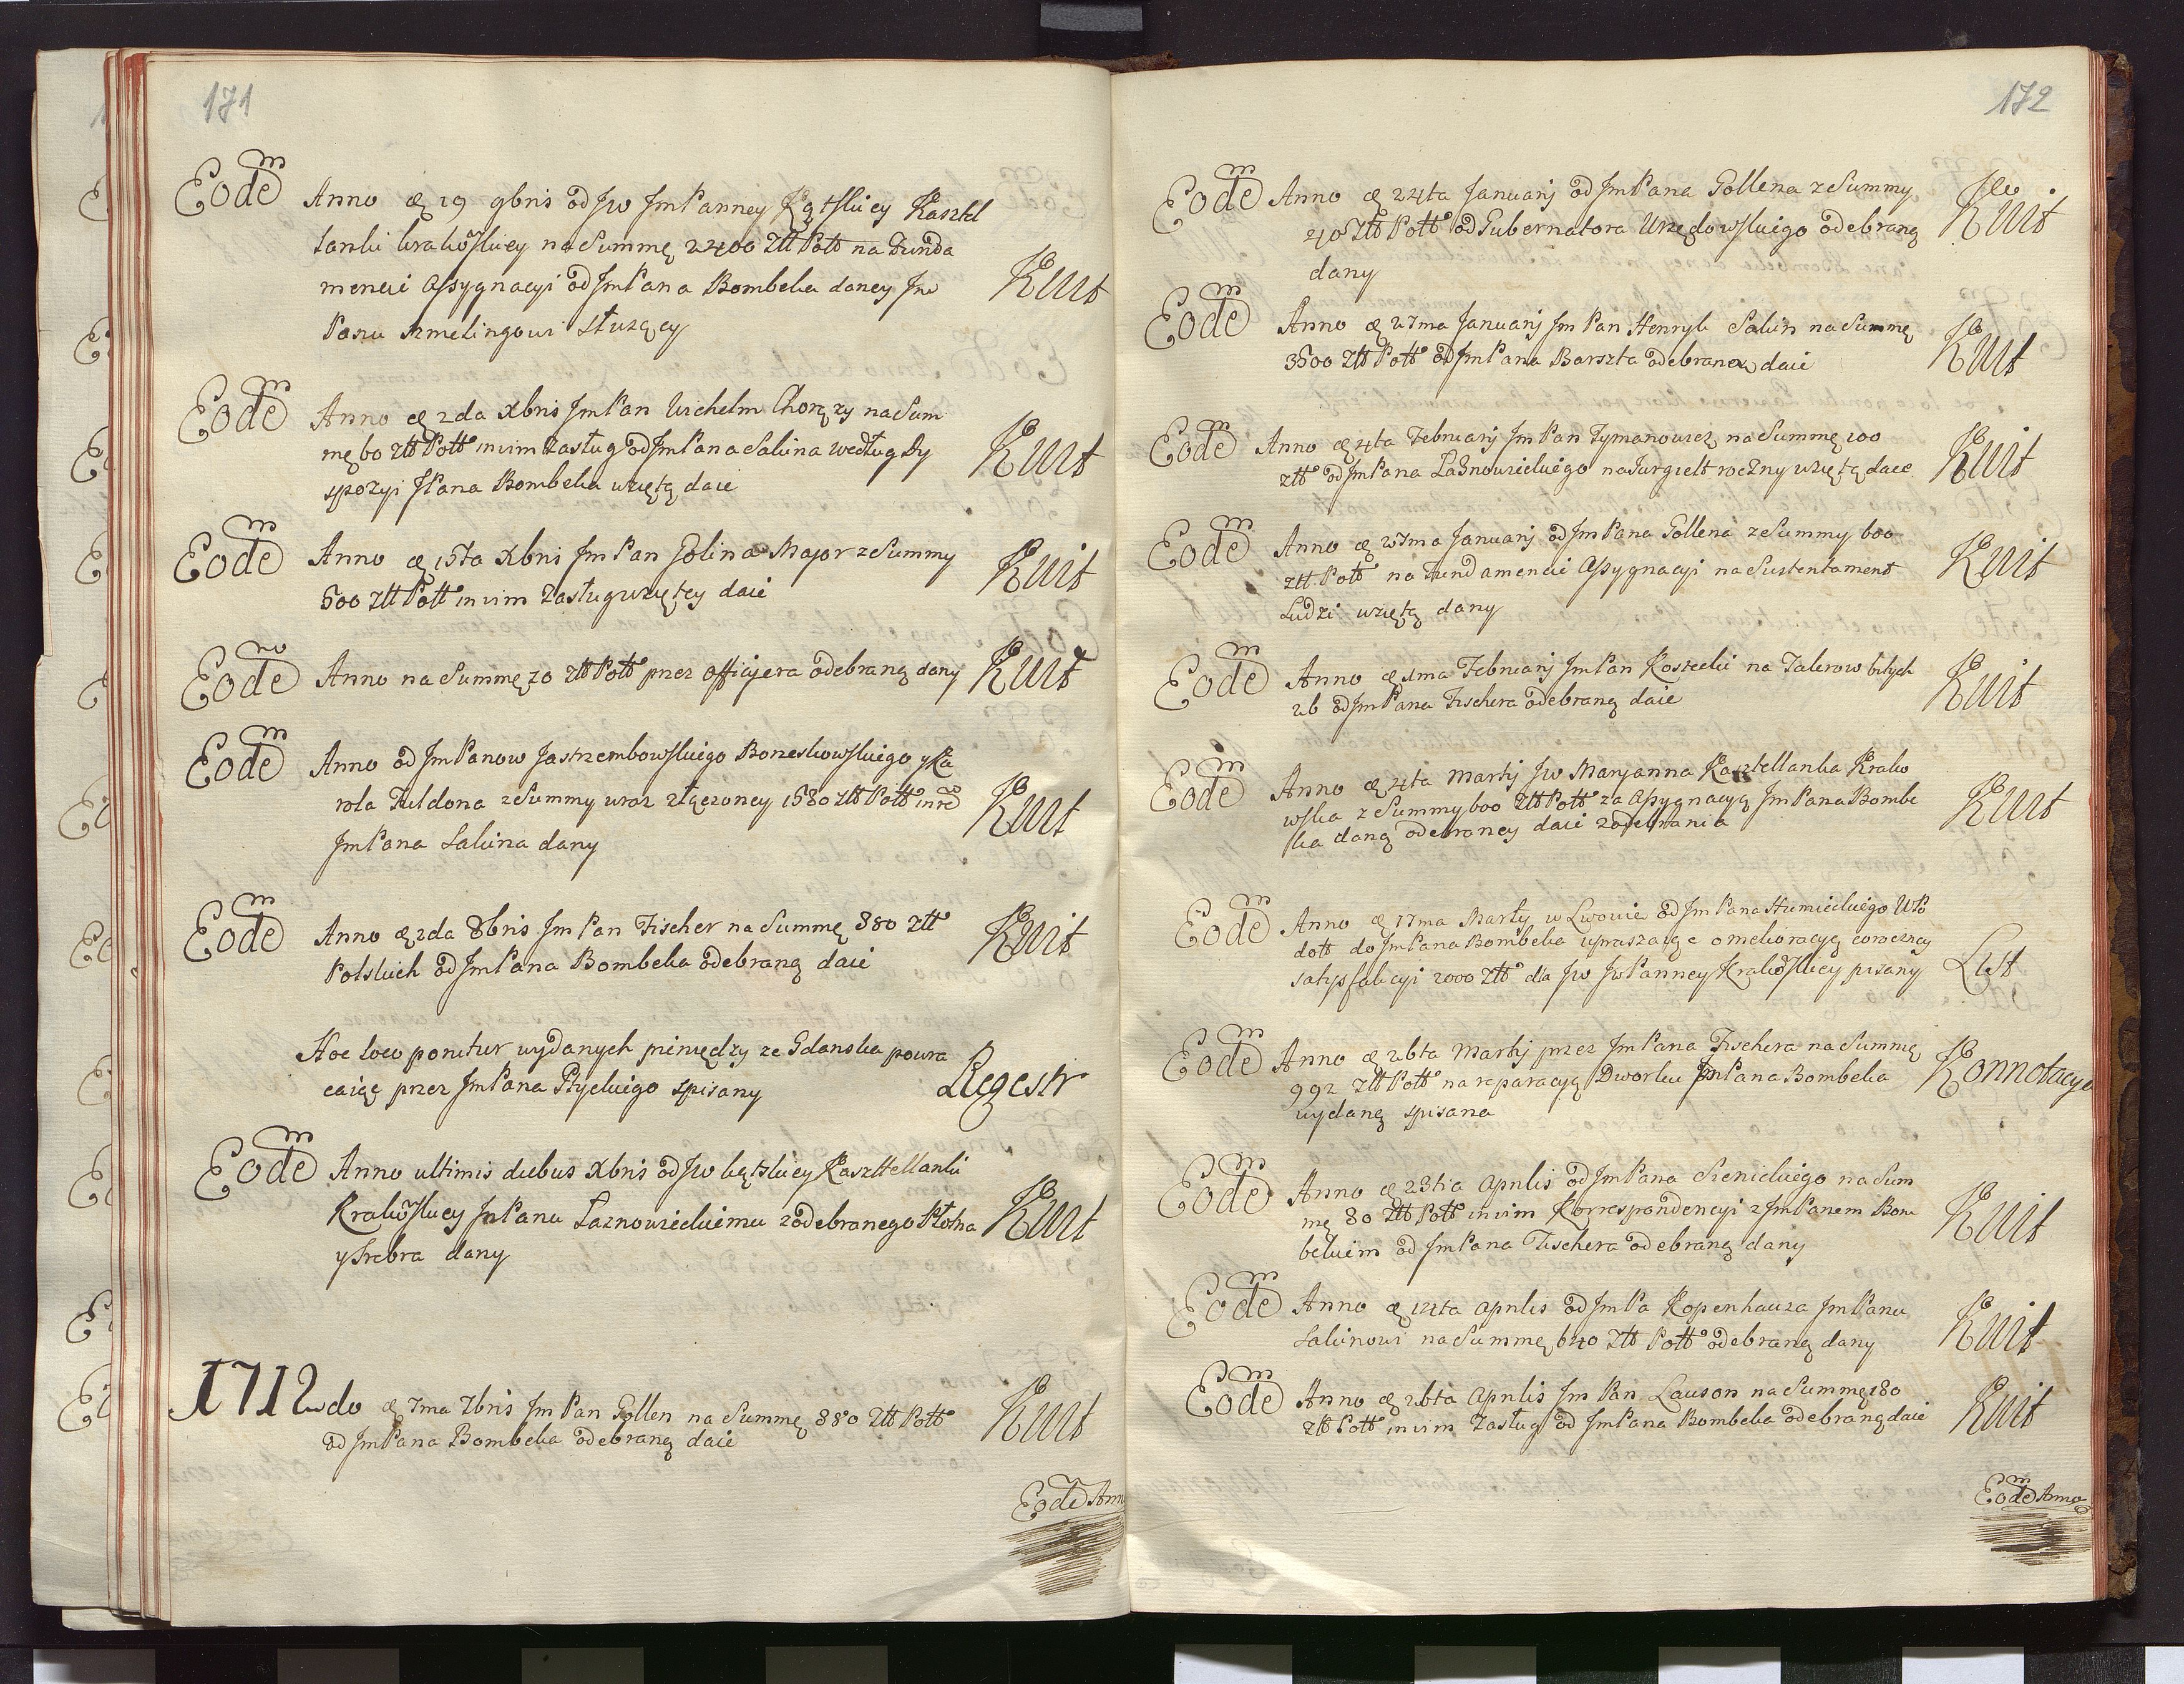 171
Eode͠m Anno æ 19 9bris od Jw JmPanney Xgtskiey Kasztel
lanki krakowskiey na Summę 2400 Złł Poł na Funda
mencie Assygnacyi od JmPana Bombeka daney Jm
Panu Szmelingowi służący Kwit
Eode͠m Anno æ 2da Xbris JmPan Wichelm Chorąży na Sum
mę 60 Złł Poll in vim Zasług od JmPana Sakina według Dy
spozyi JPana Bombeka wziętą daie Kwit
Eode͠m Anno æ 15ta Xbris JmPan Golina Major z Summy
500 Złł Poll in vim Zasług wziętey daie Kwit
Eode͠m Anno na Summę 70 złł Poll przez Officyjera odebraną dany Kwit
Eode͠m Anno od JmPanow Jastrzembowskiego Borzeskowskiego y Ka
rola Fuldona z Summy wraz złączoney 1580 złł Poll in re͠m
JmPana Sakina dany Kwit
Eode͠m Anno æ 2da 8bris JmPan Fischer na Summę 880 złł
Polskich od JmPana Bombeka odebraną daie Kwit
Hoc loco ponitur wydanych pieniędzy ze Gdanska powra
caiąc przez JmPana Ptyckiego spisany Regestr
Eode͠m Anno ultimis diebus Xbris od Jw kątskiey Kasztellanki
Krakowskiey JmPanu Laznowieckiemu z odebranego Płotna
y srebra dany Kwit
1712do æ 7ma 7bris JmPan Gollen na Summę 880 Złł Poll
od JmPana Bombeka odebraną daie Kwit
Eode͠ Ann
172
Eode͠m Anno æ 24ta Januarij od JmPana Gollena z Summy
40 Złł Poll od Gubernatora Urzędowskiego odebraną
dany Kwit
Eode͠m Anno æ 27ma Januarij JmPan Henryk Sakin na Summę
3500 Złł Poll od JmPana Barszta odebraną daie Kwit
Eode͠m Anno æ 4ta Februarij JmPan Tymanowicz na Summę 100
złł od JmPana Laznowieckiego na Jurgielt roczny wziętą daie Kwit
Eode͠m Anno æ 27ma Januarij od JmPana Gollena z Summy 600
złł Poll na Fundamencie Assygnacyi na Sustentament
Ludzi wziętą dany Kwit
Eode͠m Anno æ 1ma Februarij JmPan Koszecki na Talerow bitych
26 od JmPana Fischera odebraną daie Kwit
Eode͠m Anno æ 4ta Martij Jw Maryanna Kasztellanka Krako
wska z Summy 600 Złł Poll za Assygnacyą JmPana Bombe
ka daną odebraney daie z odebrania Kwit
Eode͠m Anno æ 17ma Martij w Lwowie od JmPana Humieckiego WPo
doll do JmPana Bombeka upraszaiąc o melioracyą coroczney
satysfakcyi 2000 Złł dla Jw JwPanney Krakowskiey pisany List
Eode͠m Anno æ 26ta Martij przez JmPana Fischera na Summę
992 Złł Poll na reparacyą Dworku JmPana Bombeka
wydaną spisana Konnotacya
Eode͠m Anno æ 23tia Aprilis od JmPana Sienickiego na Sum
mę 80 Złł Poll in vim Korrespondencyi z JmPanem Bom
bekiem od JmPana Fischera odebraną dany Kwit
Eode͠m Anno æ 14ta Aprilis od JmPa Kopenhauza JmPanu
Sakinowi na Summę 640 Złł Poll odebraną dany Kwit
Eode͠m Anno æ 26ta Aprilis JmPan Lauson na Summę 180
złł Poll in vim Zasług od JmPana Bombeka odebraną daie Kwit
Eode͠m Anno